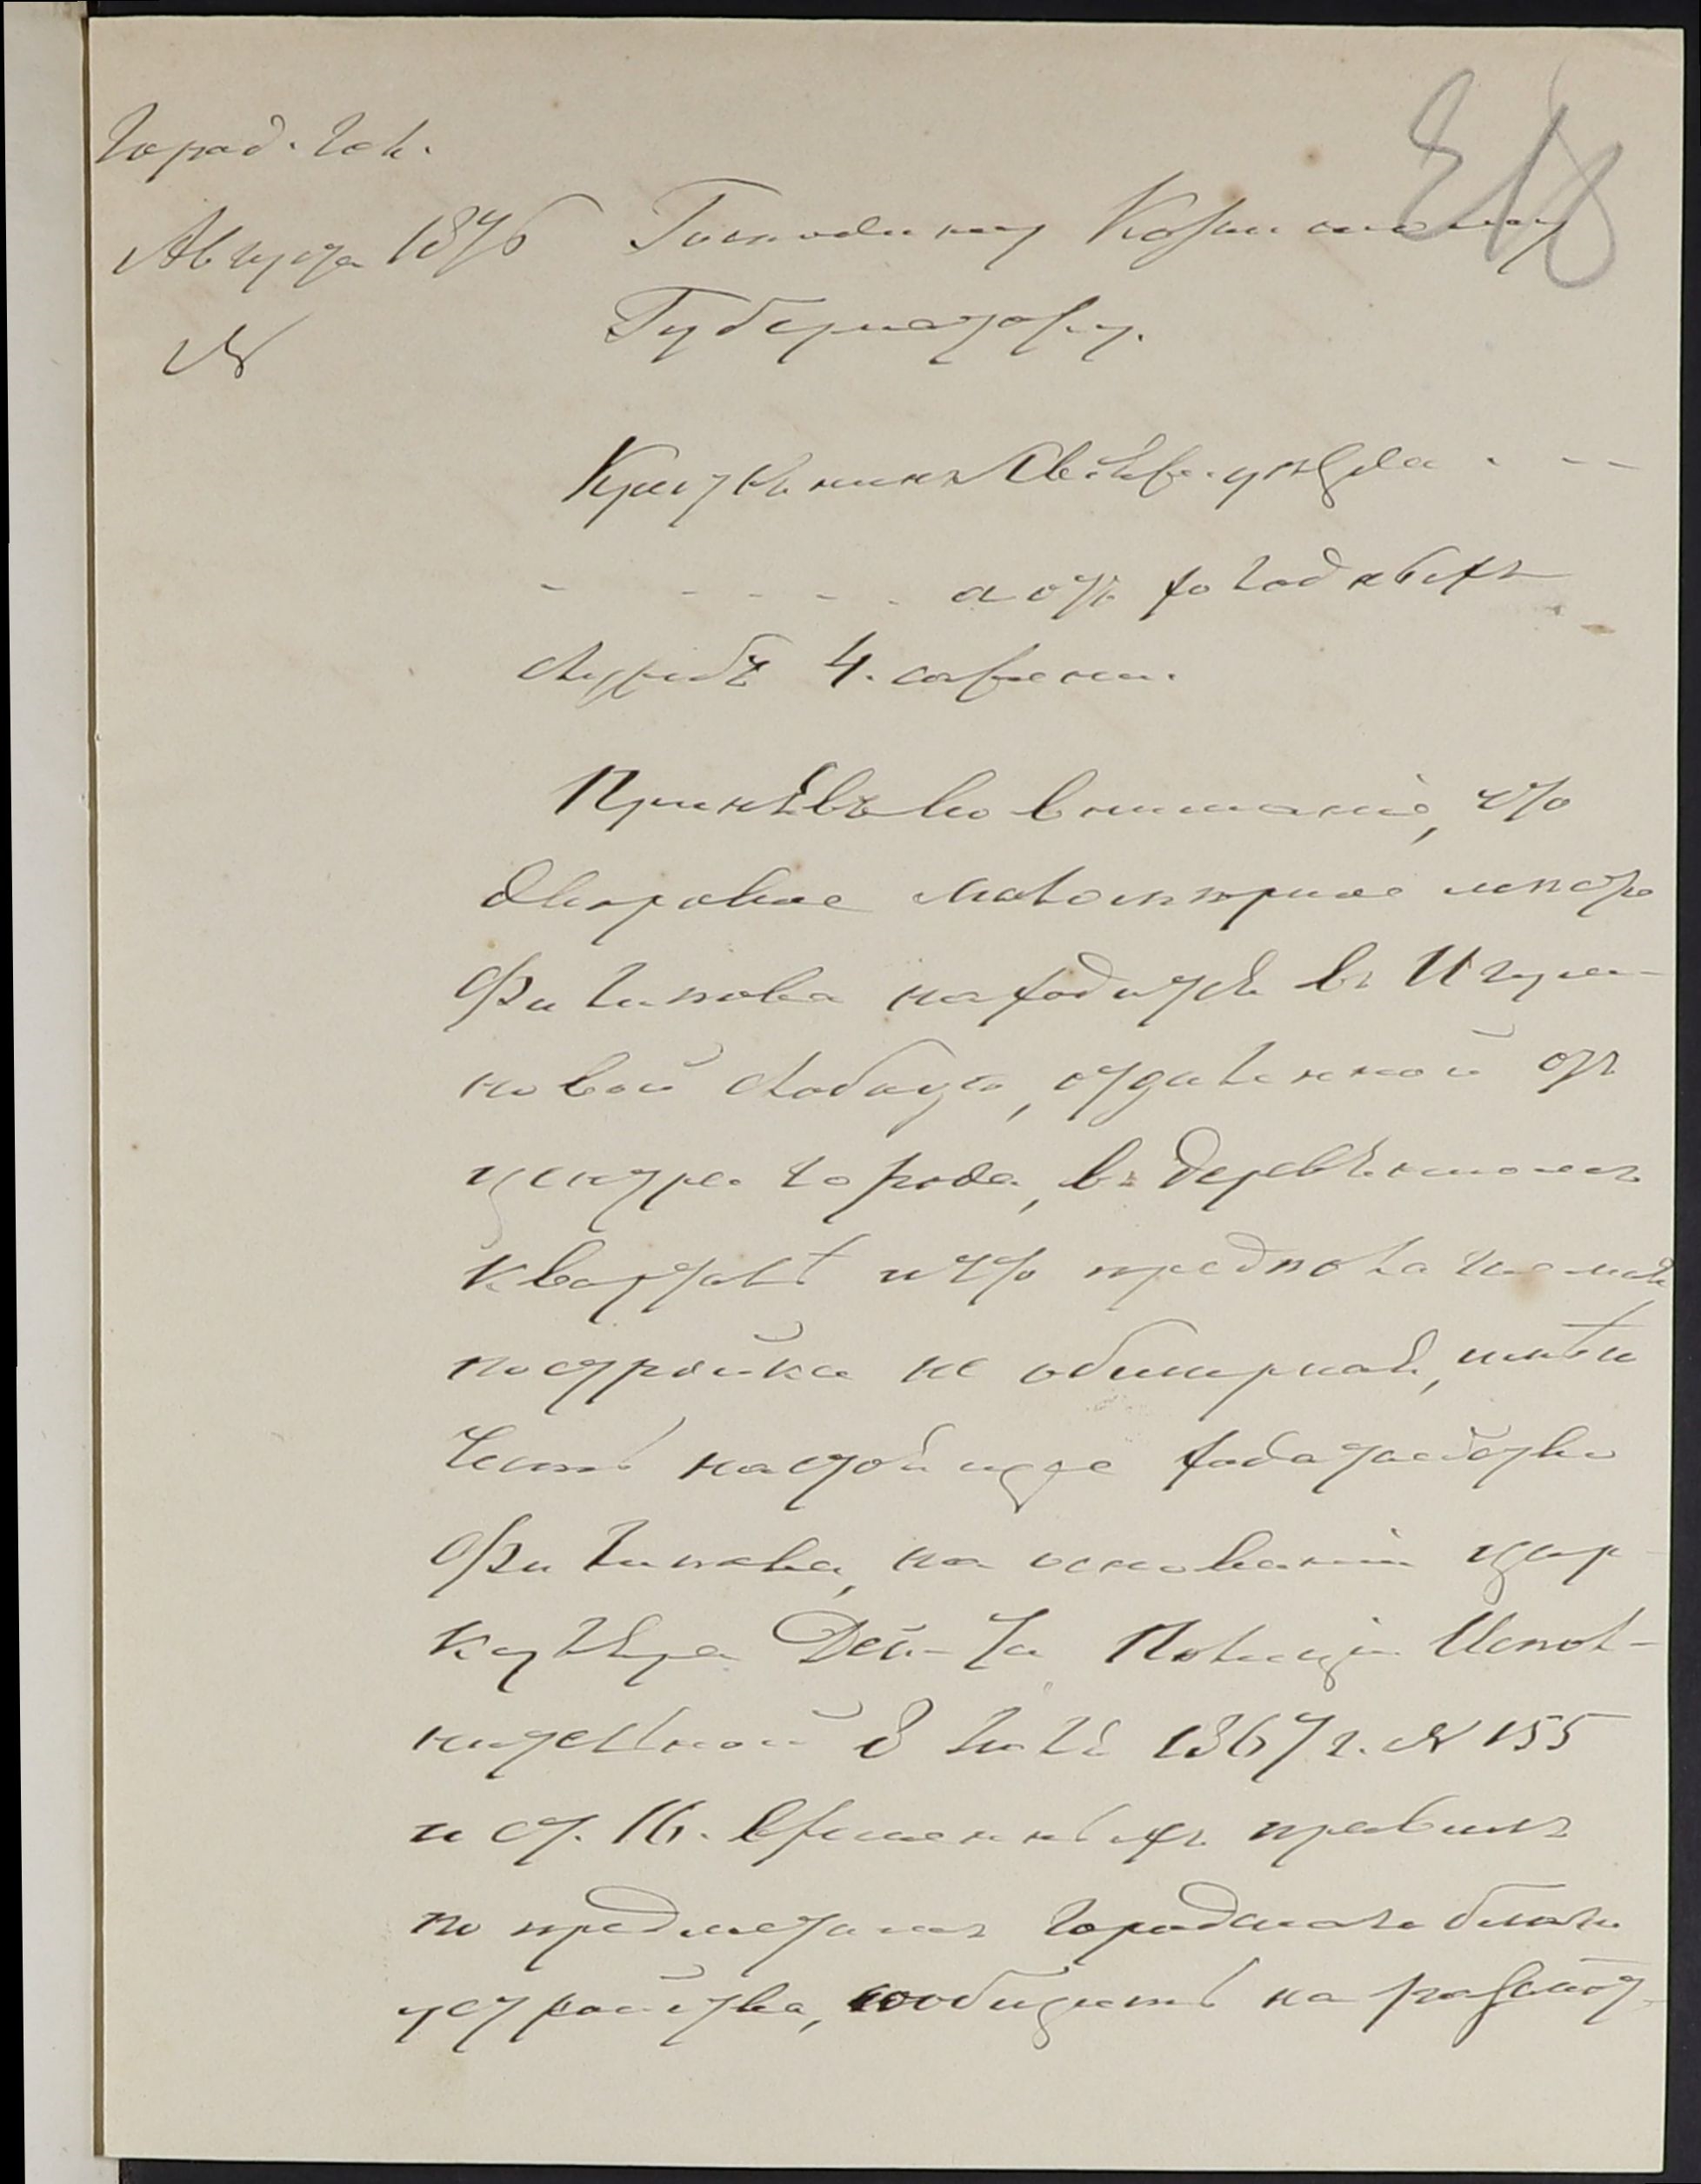 Город. Гол.
Августа 1876
№
Господину Ковенскому
Губернатору.
Крестьянинъ уѣзда - - -
- - - - - а отъ жолобныхъ
службъ 4. сажени.
Принявъ во вниманіе, что
дворовое мѣсто
Филипова находится въ Игуме-
новой слободѣ, отдаленной отъ
центра города, въ деревянномъ
кварталѣ и что предполагаемая
постройка не обширная, имѣю
честь настоящее ходатайство
Филипова, на основаніи цир-
куляра Деп-та Полиціи Испол-
нительной 8 Іюля 1867 г. № 155
и ст. 16. временныхъ правилъ
по предметамъ городскаго благо
устройства, сообщить на разсмот-